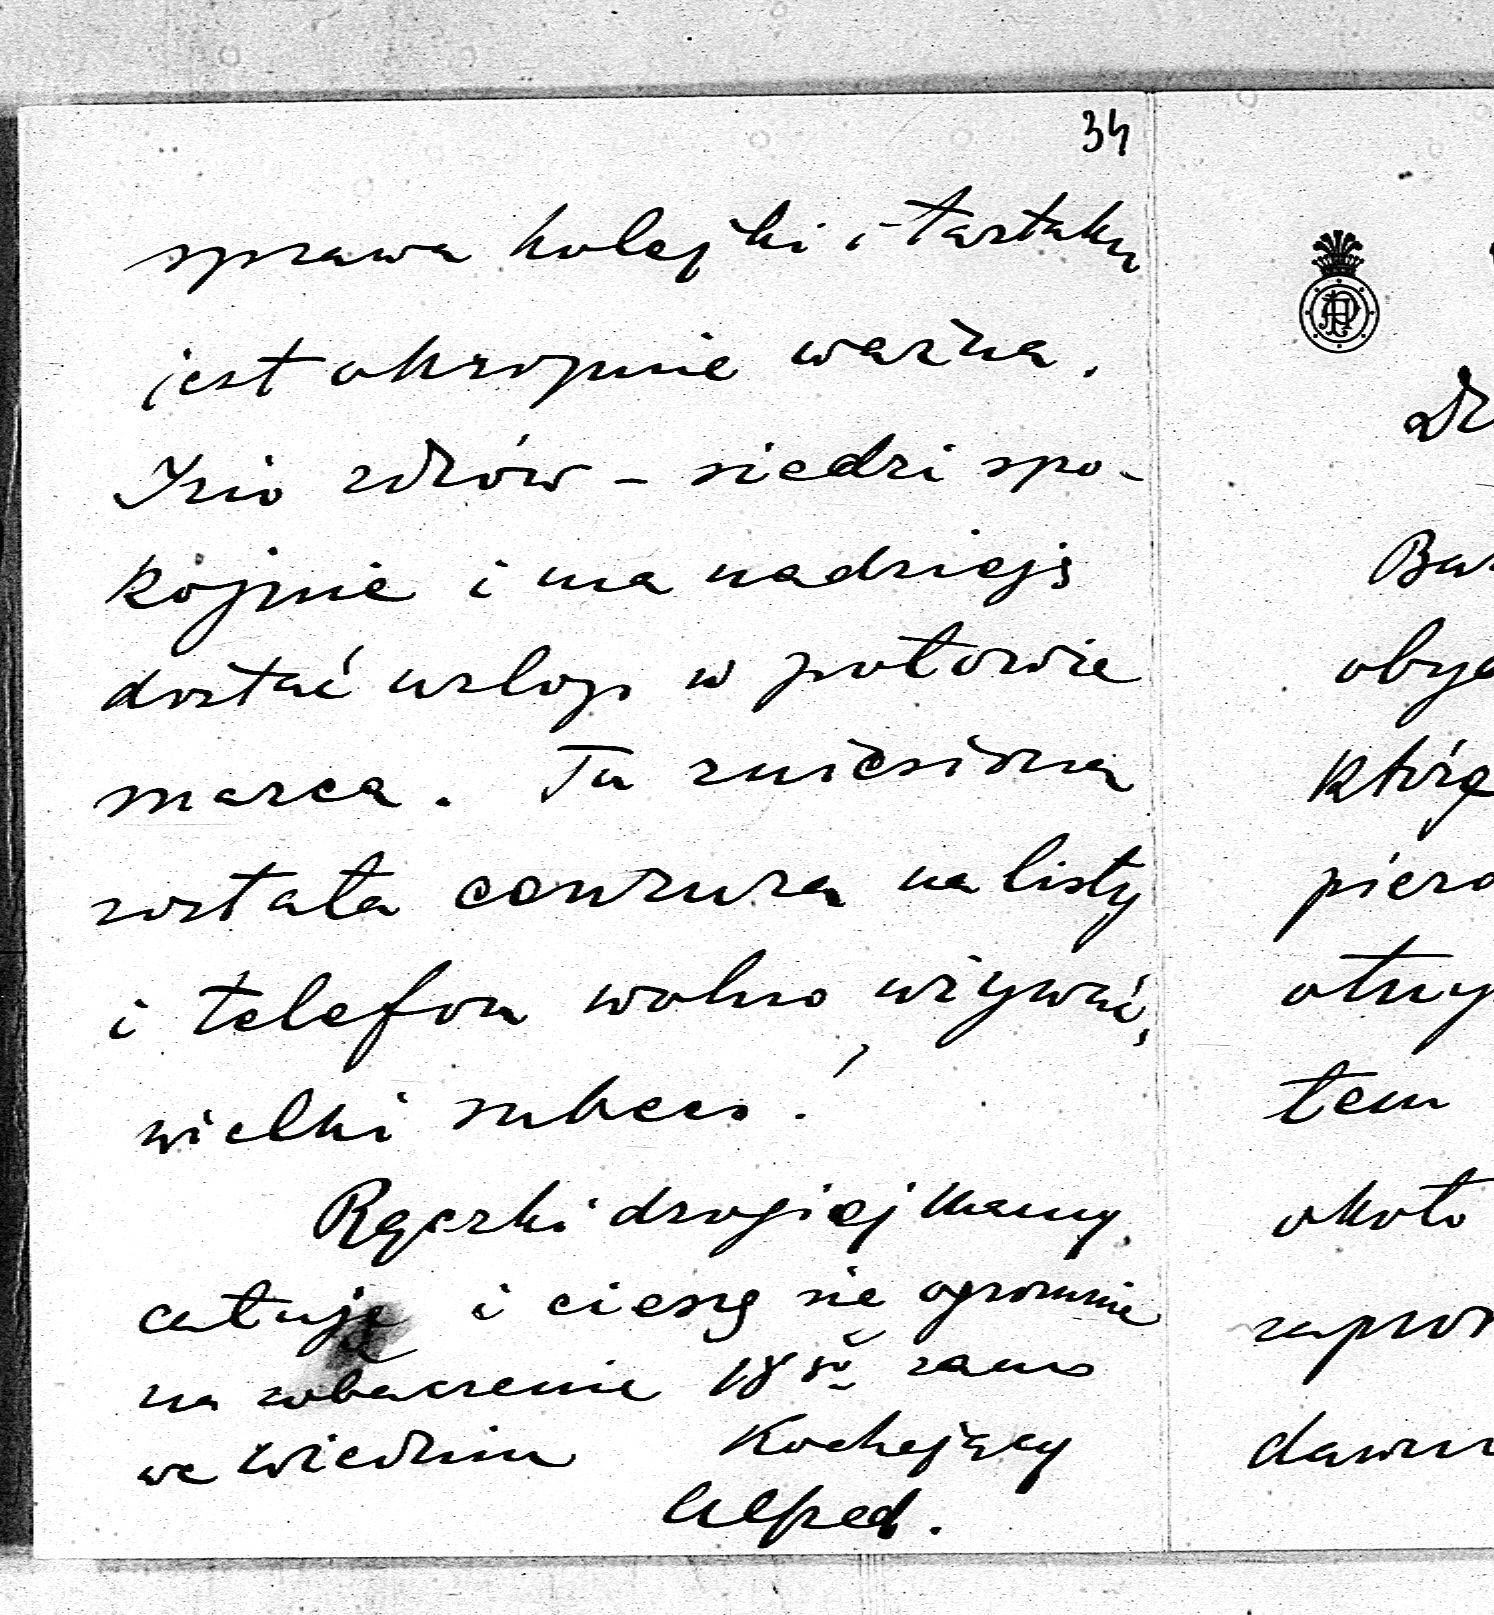 34
sprawa kolejki i tartaku
jest okropnie ważna.
Izio zdrów – siedzi spo-
kojnie i ma nadzieję
dostać urlop w połowie
marca. Tu zniesiona
została cenzura na listy
i telefon wolno używać,
wielki sukces.
Rączki drogiej Mamy
całuję i cieszę się ogromnie
na zobaczenie 18go rano
we Wiedniu Kochający
Alfred.
Dr
Bar
obyd
którę
piero
otrzy
tem
około
zapro
dawn